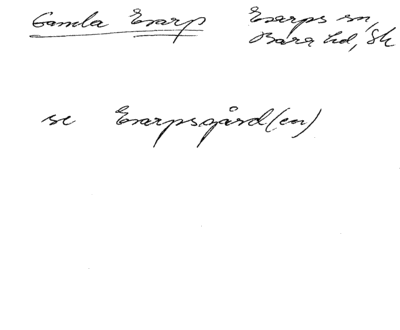 Gamla Esarp Esarps sn,
Bara hd, Sk
se Esarpsgård(en)